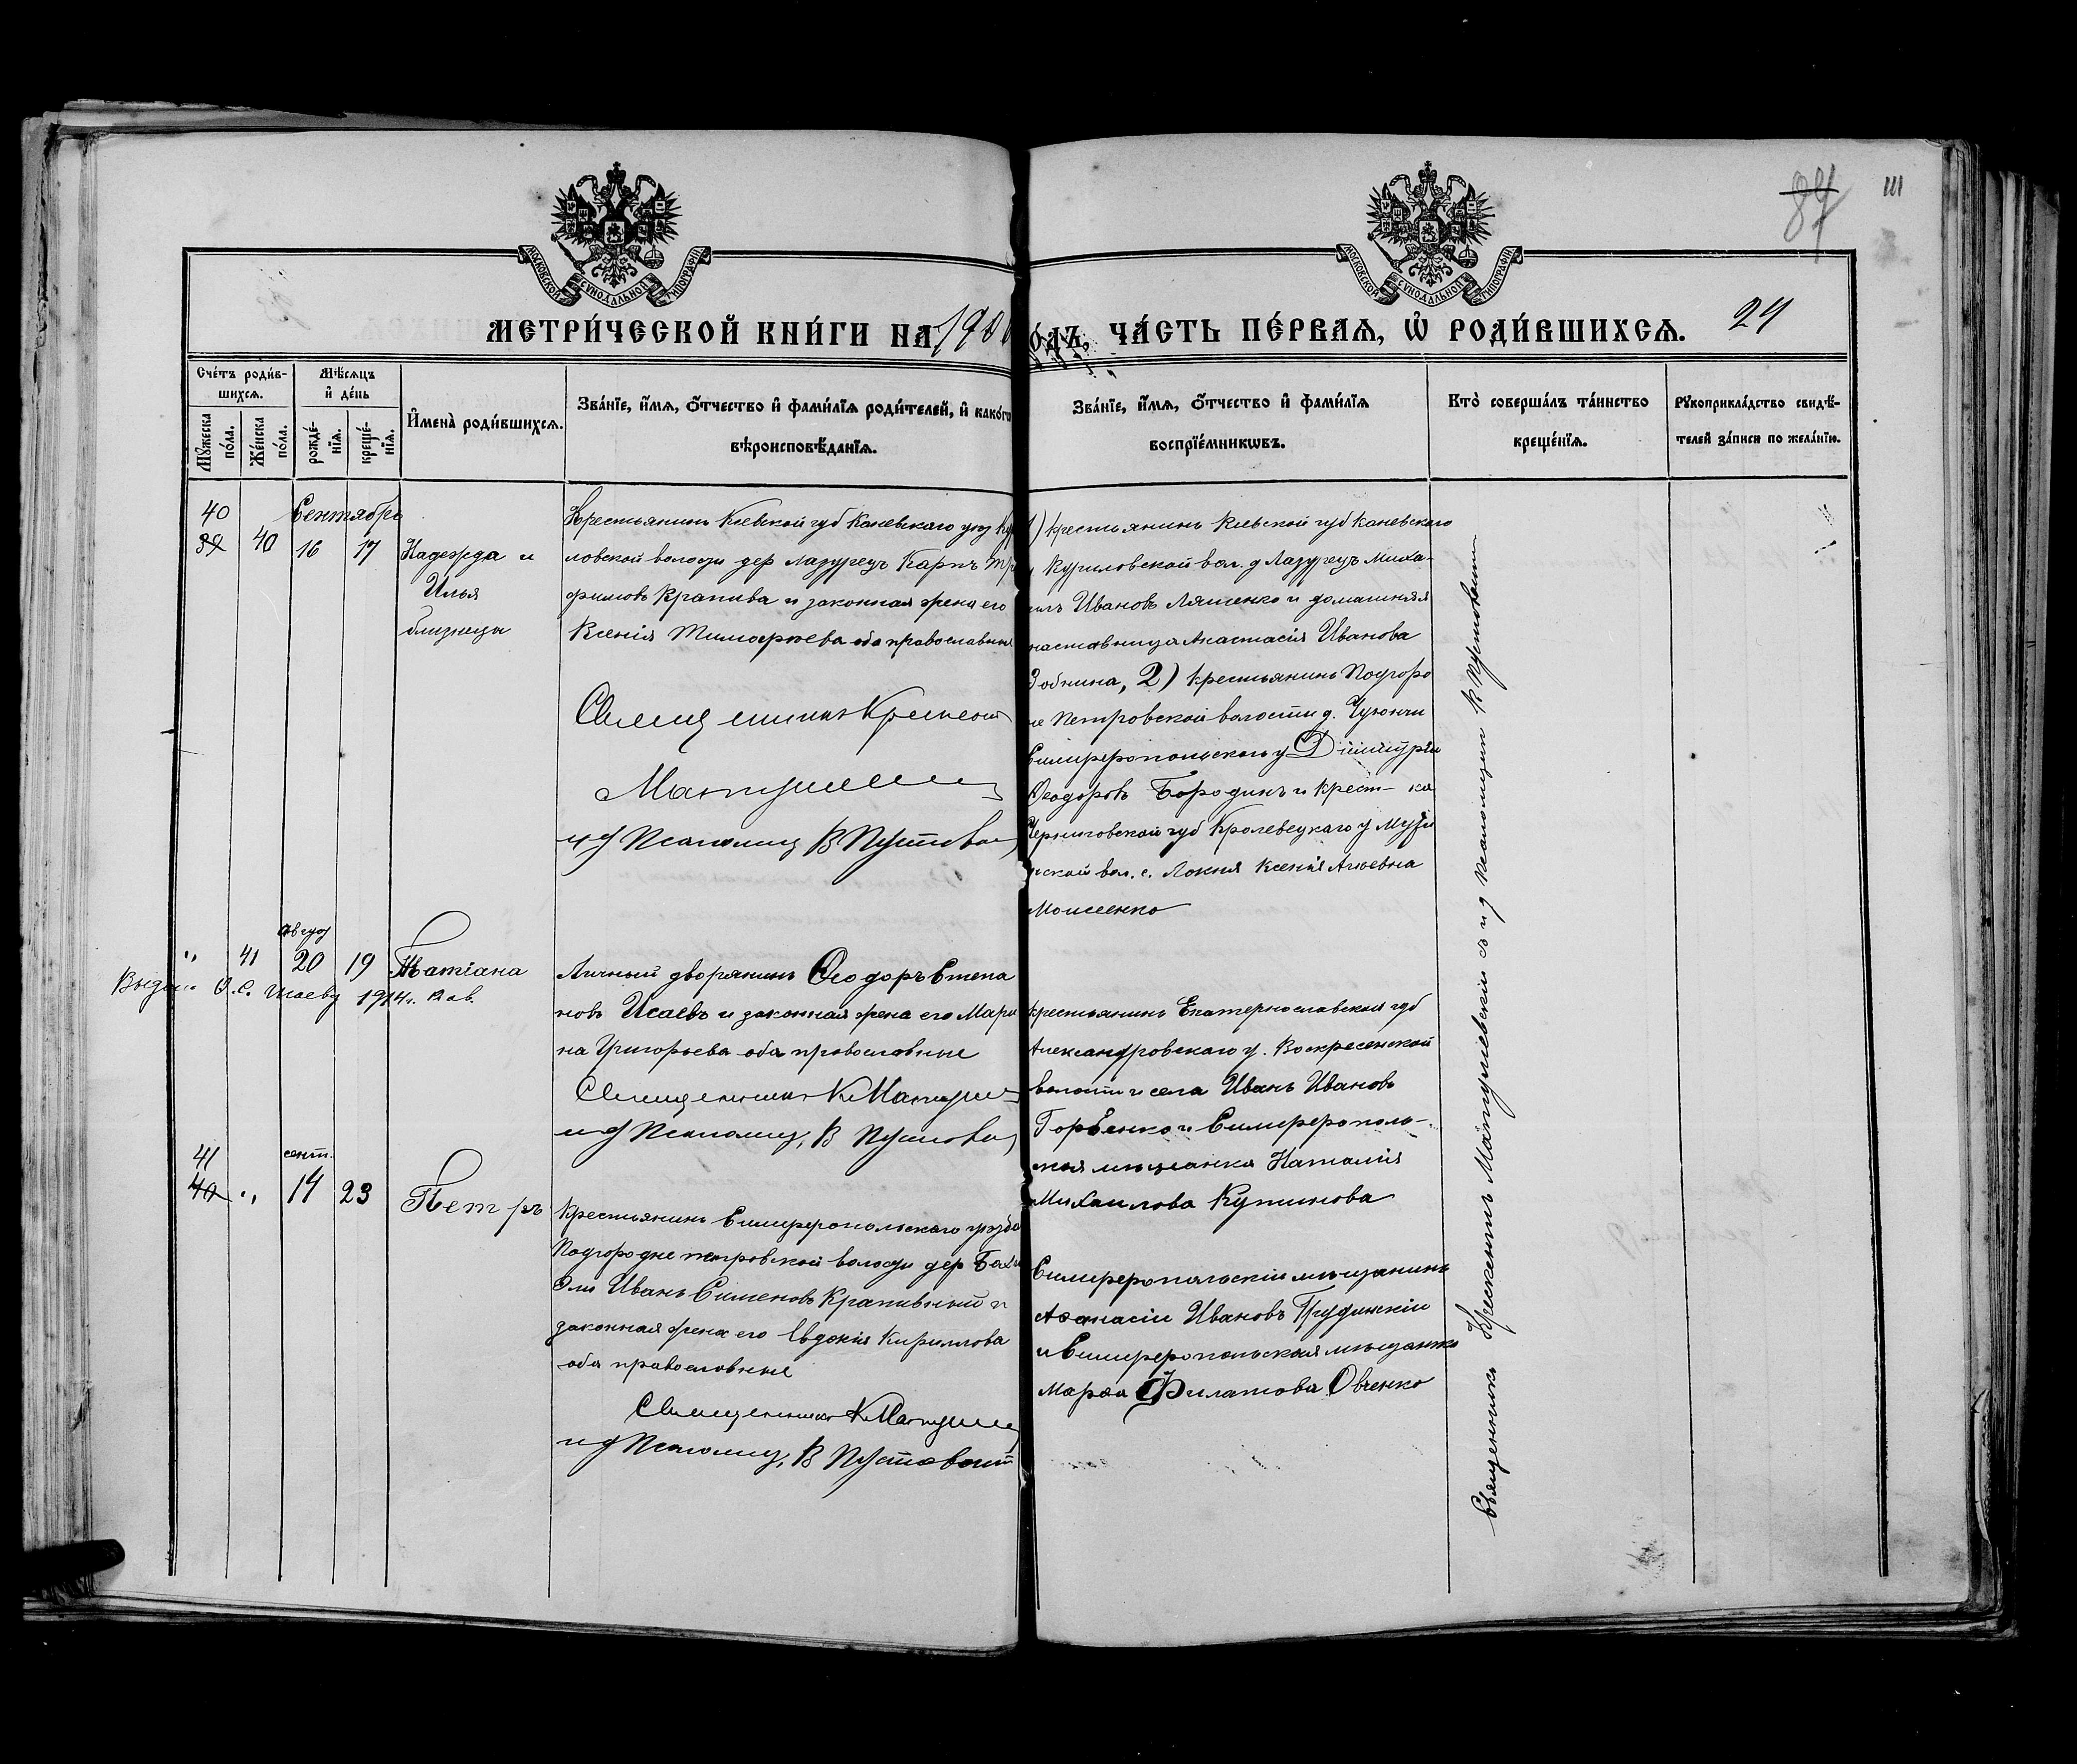 87
111
МОСКОВСКОЙ СУНОДАЛЬНОЙ ТИПОГРАФІИ
МОСКОВСКОЙ СУНОДАЛЬНОЙ ТИПОГРАФІИ
МЕТРИ́ЧЕСКОЙ КНИ́ГИ НА 190
О́ДЪ, ЧА́СТЬ ПЕ́РВАѦ, Ѡ҆ РОДИ́ВШИХСѦ. 24
Сче́тъ роди́в-
шихсѧ.
Мꙋ́жеска по́ла.
Же́нска по́ла.
Мѣ́сѧцъ
и҆ де́нь
рожде́-
нїѧ.
креще́-
нїѧ.
И҆мена̀ роди́вшихсѧ.
Зва́нїе, и҆́мѧ, ѻ҆́тчество и҆ фами́лїѧ роди́телей, и҆ како́гѡ
вѣроисповѣ́данїѧ.
Зва́нїе, и҆́мѧ, ѻ҆́тчество и҆ фами́лїѧ
воспрїе́мникѡвъ.
Кто̀ соверша́лъ та́инство
креще́нїѧ.
Рꙋкоприкла́дство свидѣ́-
телей за́писи по жела́нїю.
40 Сентябрь
39 40 16 17 Надежда и
Илья
близнецы
Крестьянинъ Кіевской губ Каневскаго уѣз Ку
ловской волости дер Лазурецъ Карпъ Тр
фимовъ Крапива и законная жена его
Ксенія Тимофеева оба православные
Священникъ Крискент
Матушеви
и д Псаломщ В Пустово
1) крестьянинъ Кіевской губ Каневскаго
у Куриловской вол. д Лазурецъ Миха-
илъ Ивановъ Ляшенко и домашняя
наставница Анастасія Иванова
Зобнина, 2) крестьянинъ Подгоро
не Петровской волости д. Чуюнчи
Симферопольскаго у Димитрій
Ѳеодоровъ Бородинъ и крест-ка
Черниговской губ Кролевецкаго у
ской вол. с. Локня Ксенія
Моисеенко
Август
" 41 20 19 Татіана
Выдана Ѳ. С. Исаеву 1914 г.
Личный дворянинъ Ѳеодоръ Степа
новъ Исаевъ и законная жена его Мари
на Григорьева оба православные
Священникъ К Матуше
и д Псаломщ. В Пустово
Крестьянинъ Екатеринославской губ
Александровскаго у. Воскресенской
волости и села Иванъ Ивановъ
Горбенко и Симферополь-
ская мѣщанка Наталія
Михаилова Купинова
41 сент.
40 " 14 23 Петръ
Крестьянинъ Симферопольскаго уѣзда
Подгородне петровской волости дер Бахчи
Эли Иванъ Сименовъ Крапивный и
законная жена его Евдокія Кириллова
оба православные
Священникъ К Матуше
и д Псаломщ. В Пустовойт
Симферопольскій мѣщанинъ
Аѳанасій Ивановъ Грудинскій
и Симферопольская мѣщанка
Марѳа Филатова Овченко
Священникъ Крискентъ Матушевскій съ и д псаломщик В Пустовойт